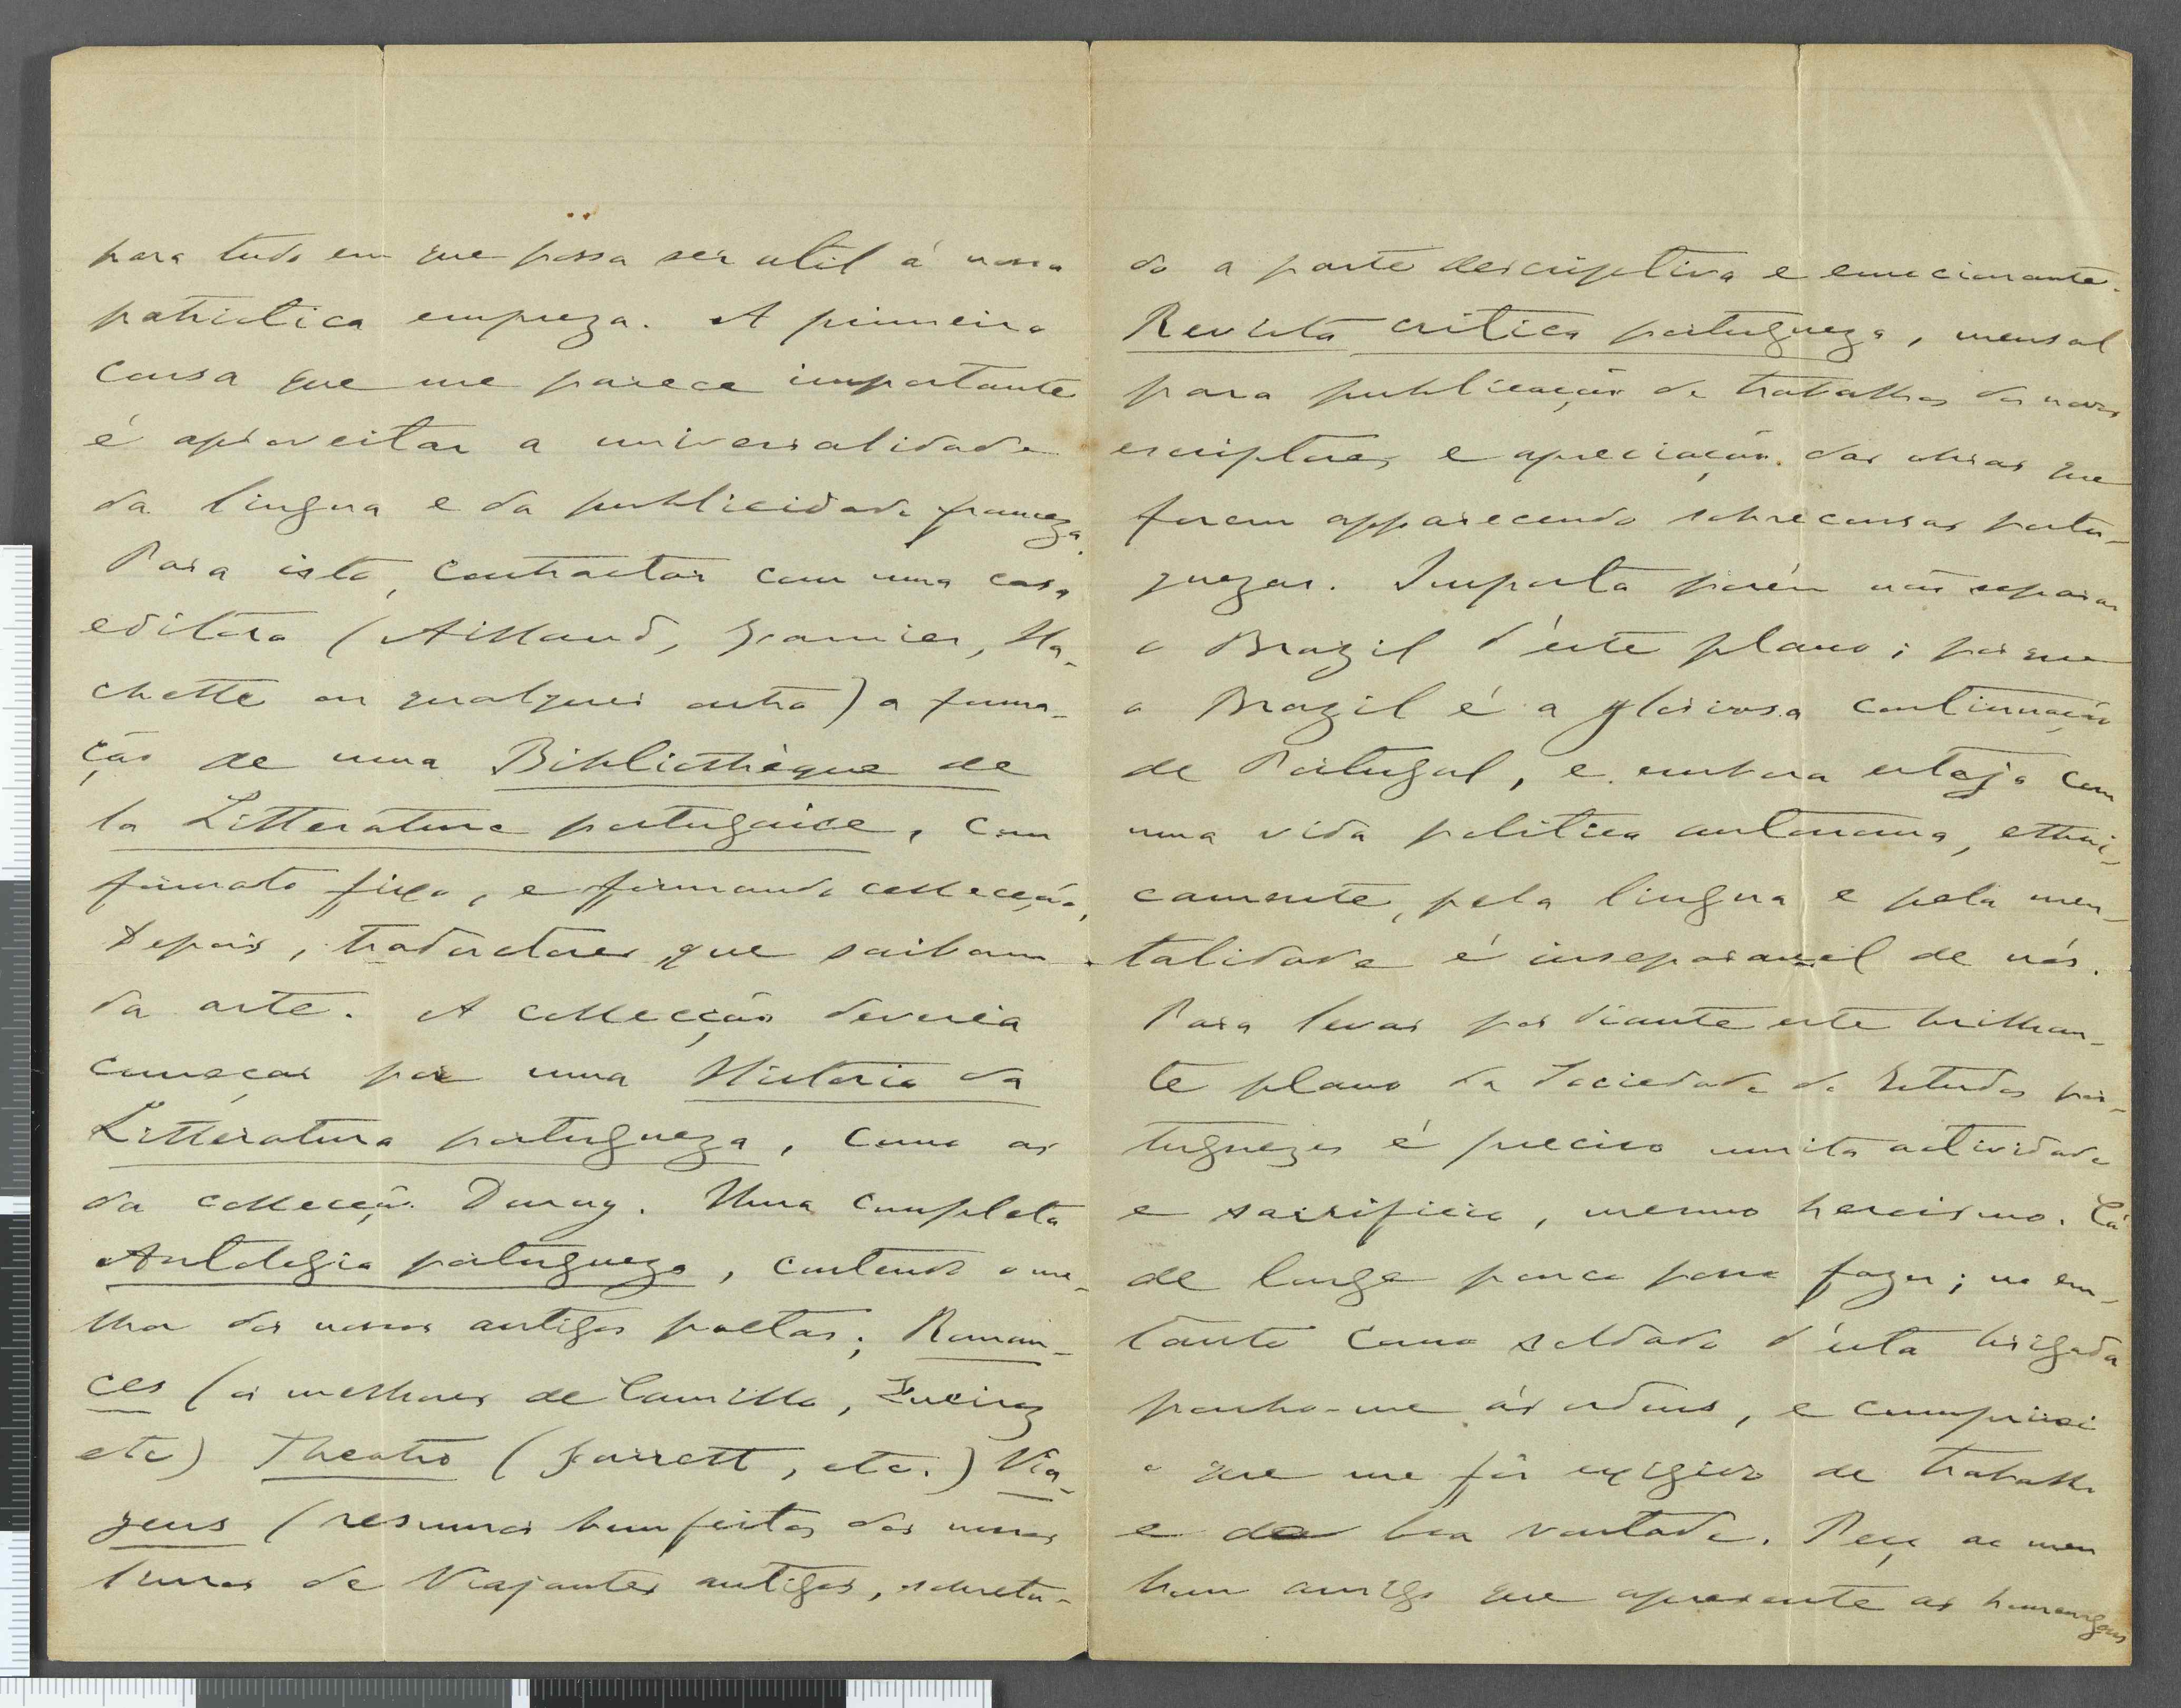 para tudo em que possa ser util á nossa
patriotica empreza. A primeira
cousa que me parece importante
é aproveitar a universalidade
da lingua e da publicidade franceza.
Para isto, contractar com uma casa
editora (Aillaud, Garnier, Ha-
chette ou qualquer outra) a forma-
ção de uma Bibliothèque de
la Litterature portugaise, com
formato fixo, e formando collecção,
Depois, traductores que saibam
da arte. A collecção deveria
começar por uma Historia da
Litteratura portugueza, como as
da collecção Duruy. Uma completa
Antologia portugueza, contendo o me-
lhor dos nossos antigos poetas; Roman-
ces (os melhores de Camillo, Queiroz
etc) Theatro (Garrett, etc.) Via-
gens (resumos bem feitos dos nossos
livros de Viajantes antigos, sobretu-
do a parte descriptiva e emocionante.
Revista critica portugueza, mensal
para publicação de trabalhos dos novos
escriptores e apreciação das obras que
forem apparecendo sobre cousas portu-
guezas. Importa porém não separar
o Brazil d'este plano; por que
o Brazil é a gloriosa continuação
de Portugal, e embora esteja com
uma vida politica autonoma, ethni-
camente, pela lingua e pela men-
talidade é inseparavel de nós.
Para levar por diante este brilhan-
te plano da Sociedade de Estudos por-
tuguezes é preciso muita actividade
e sacrificio, mesmo heroismo. Cá
de longe pouco posso fazer; no em-
tanto como soldado d'esta brigada
ponho-me ás ordens, e cumprirei
o que me fôr exigido de trabalho
e de boa vontade. Peço ao meu
bom amigo que apresente as homenagens